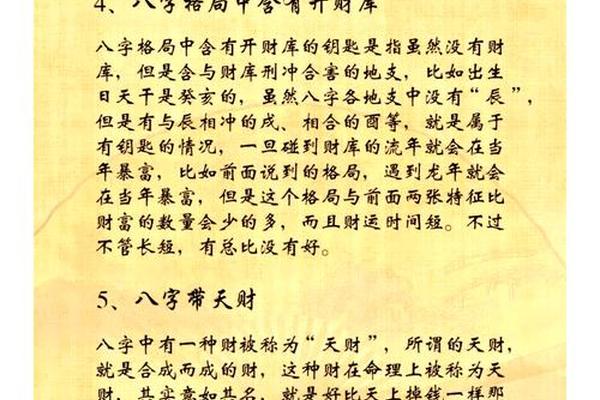 4、八字格局中含有开财库
八字格局中含有开财库的钥匙是指虽然没有财
库，但是含与财库刑冲合害的地支，比如出生
日天干是癸亥的，虽然八字各地支中没有“辰”，
但是有与辰相冲的戌、相合的酉等，就是属于
有钥匙的情况，一旦碰到财库的流年就会在当
年暴富，比如前面说到的格局，遇到龙年就会
在当年暴富，但是这个格局与前面两张特征比
财富的数量会少的多，而且财运时间短。不过
不管长短，有总比没有好。
5、八字带天财
八字中有一种财被称为“天财”，所谓的天财，
就是合成而成的财，这种财在命理上被称为天
财，其实意如其名，就是好比天上掉钱一样那